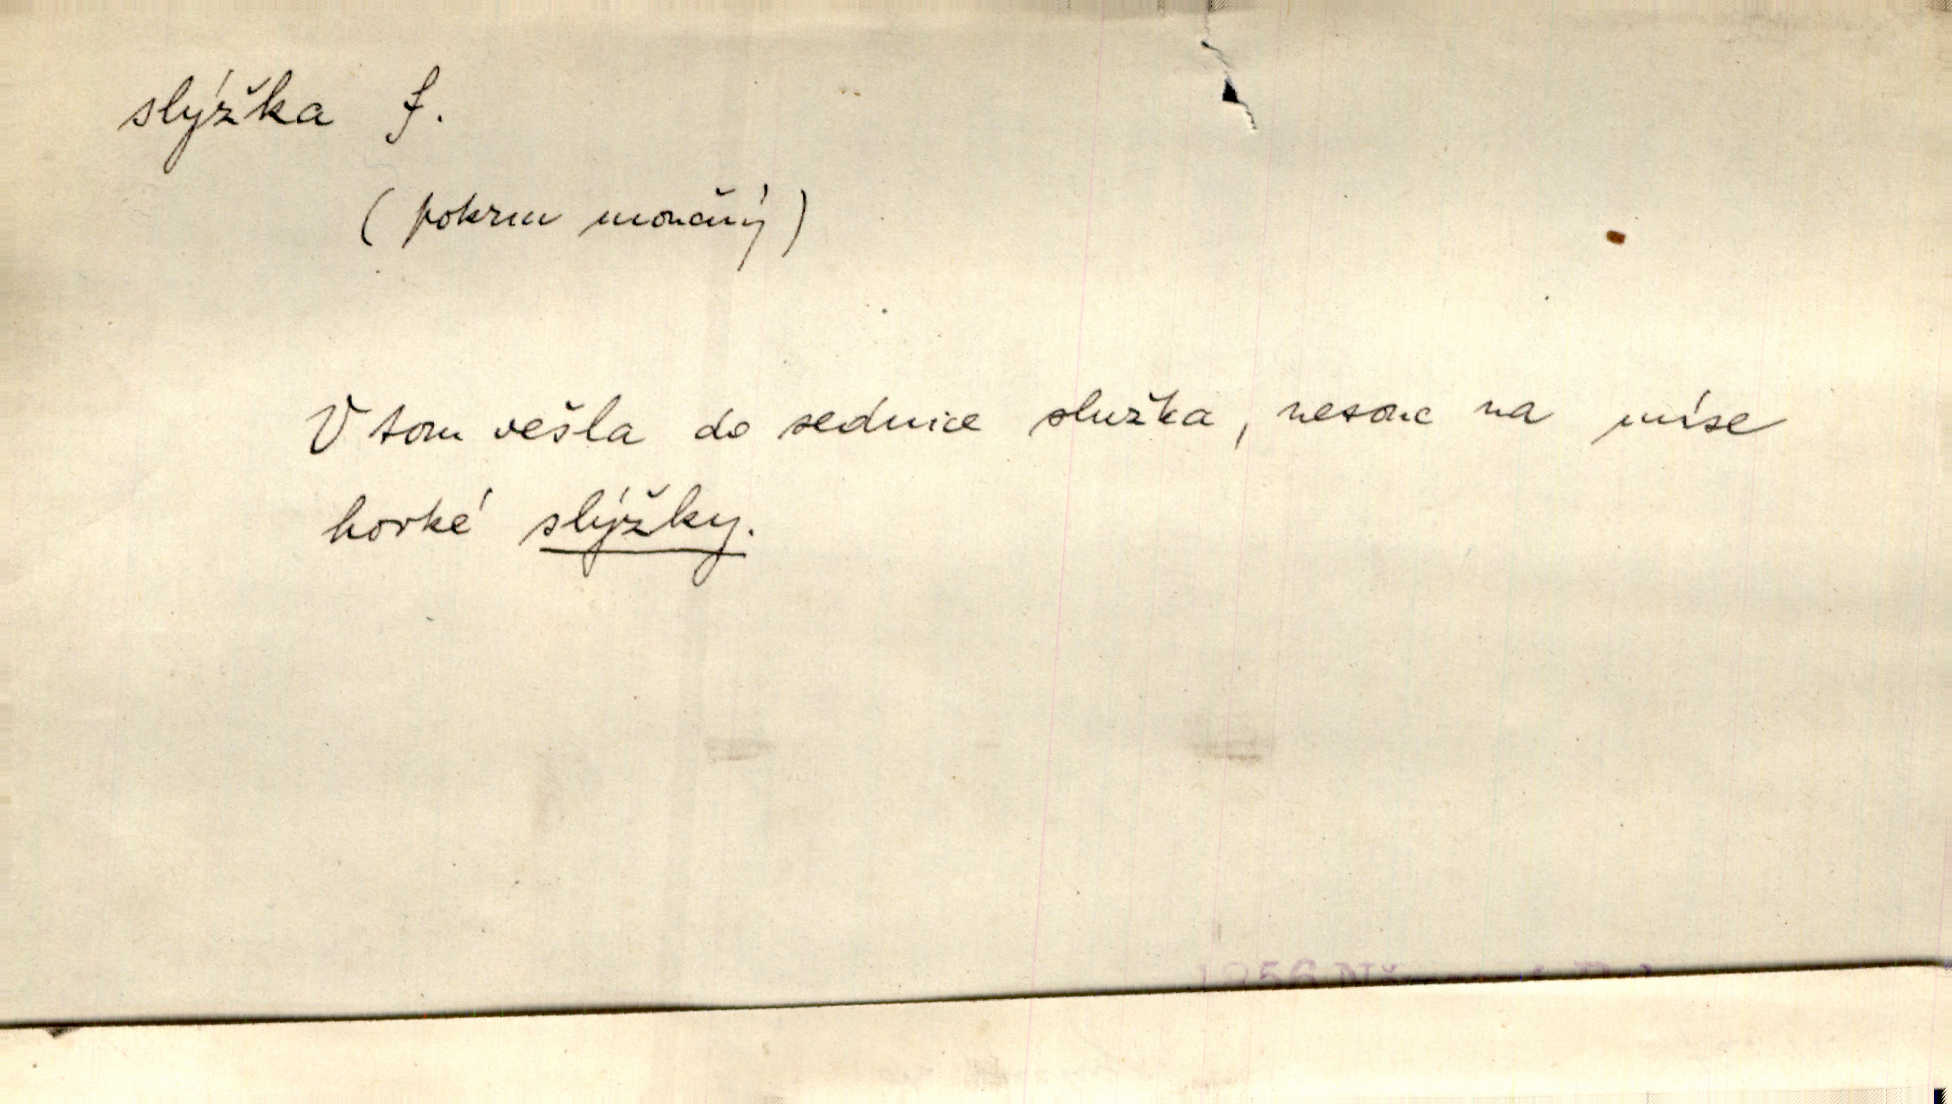 slýžka f.
(pokrm moučný)
V tom vešla do sednice služka, nesouc na míse
horké slýžky.
1956